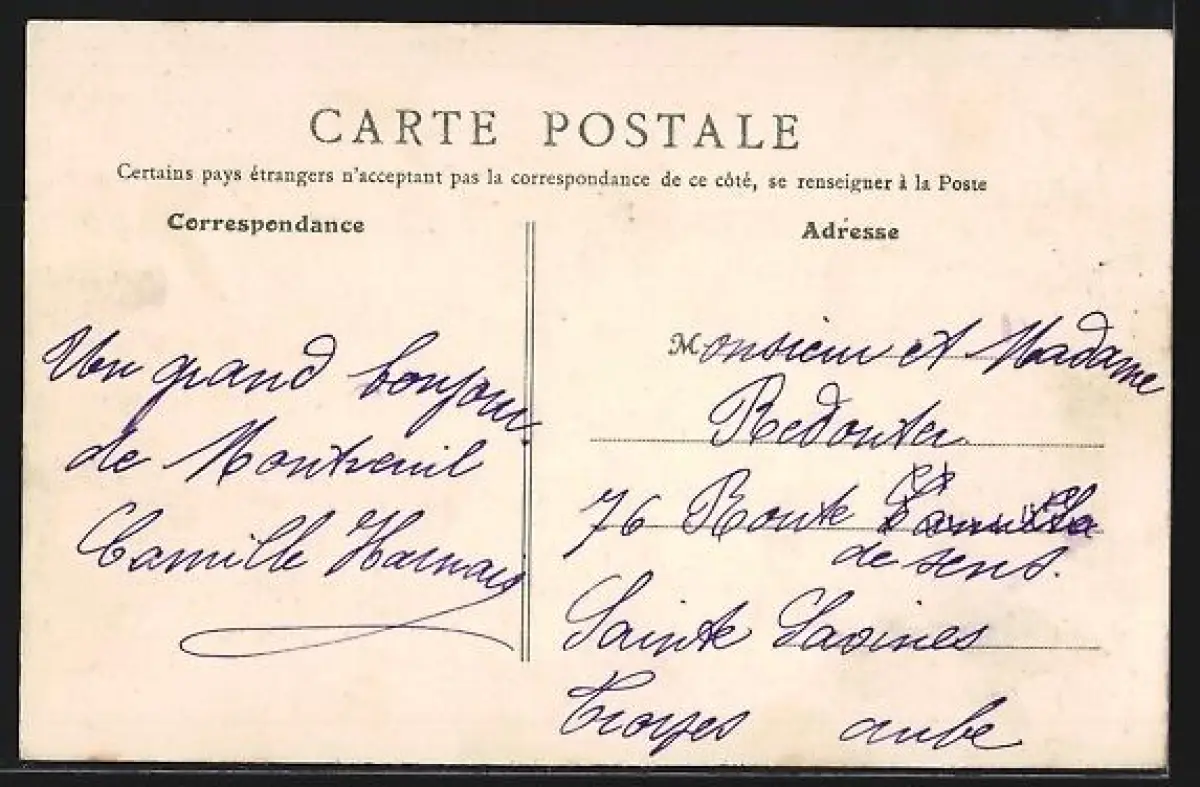 CARTE POSTALE
Certains pays étrangers n'acceptant pas la correspondance de ce côté, se renseigner à la Poste
Correspondance
Un grand bonjour
de Montreuil
Camille Harnais
Adresse
Monsieur et Madame
Redouter
76 Route
de sens.
Sainte Savines
Troyes aube